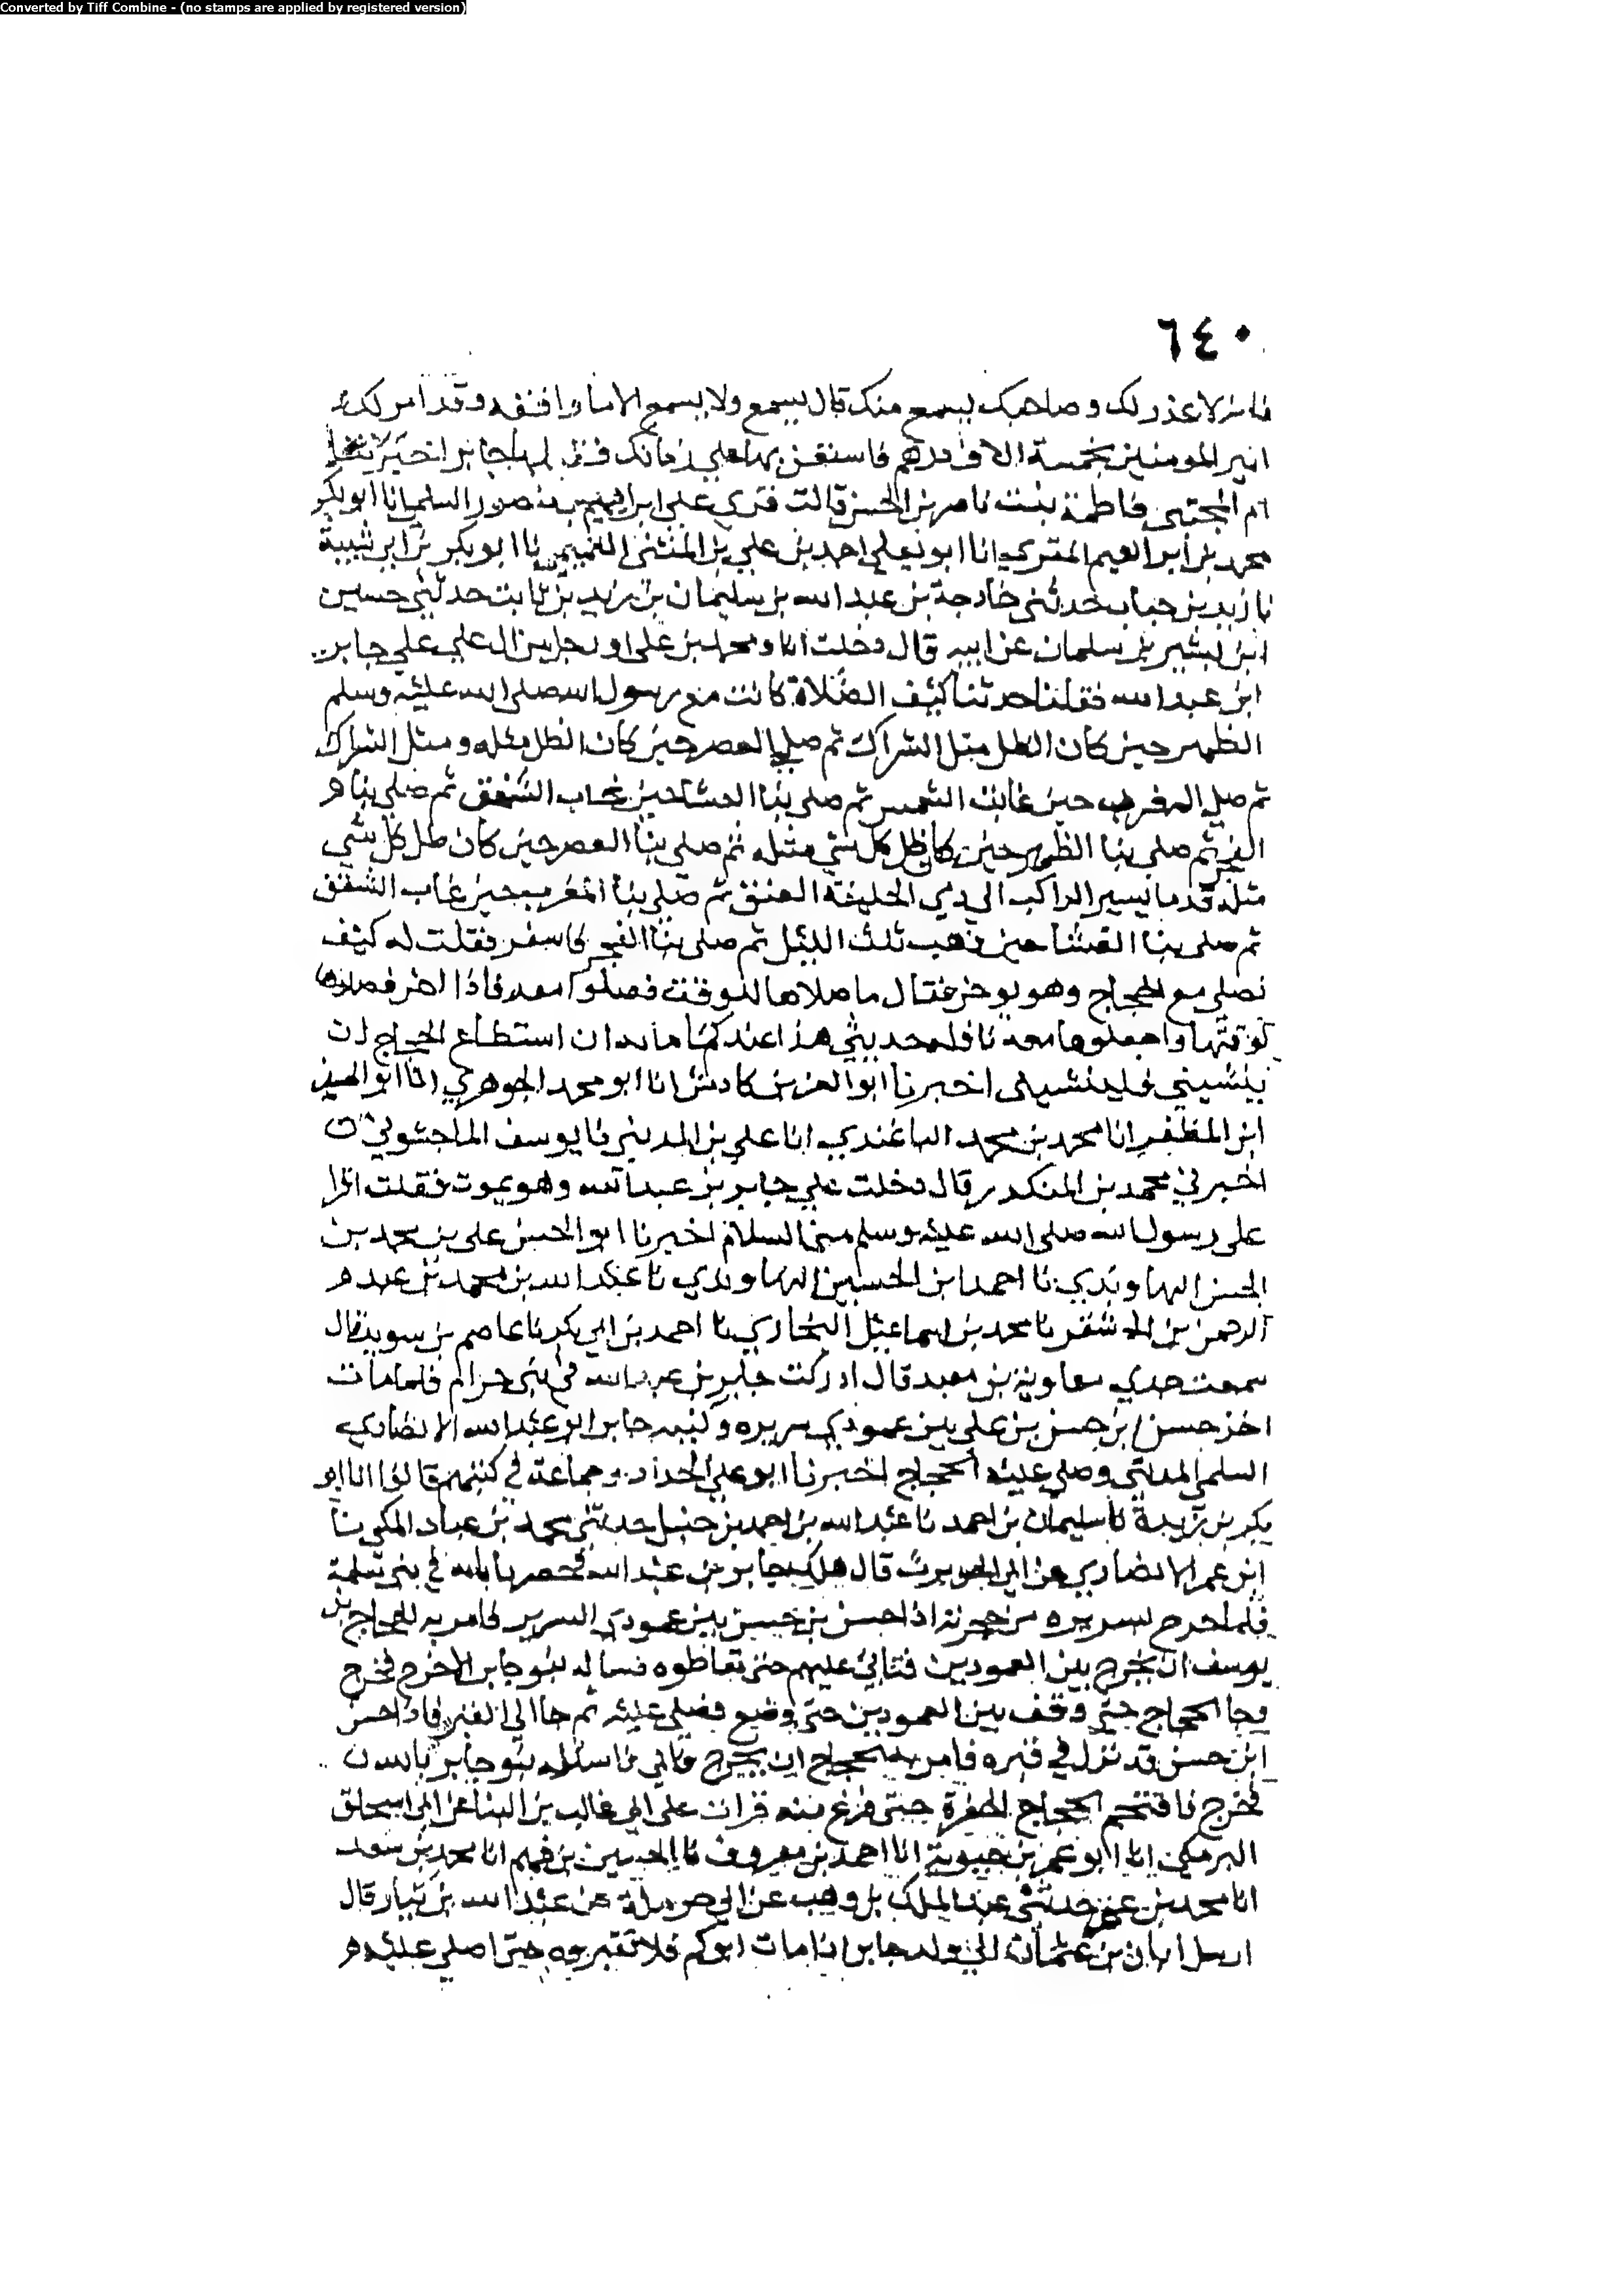 Converted by Tiff Combine - (no stamps are applied by registered version)
٦٤٠
لا عذر لك وصاحبك يسمع منك قال يسمع ولا يسمع الا ما وافقه وقد امر لك
امير المومنين بخمسة الاف درهم فاستعن بها على زمانك لها جابر اخبرتنا
ام المجتبى فاطمة بنت ناصر بن الحسن قالت قرى على ابراهيم بن منصور السلمي انا ابو بكر
محمد بن ابراهيم المقري انا ابو يعلى احمد بن علي بن المثنى التميمي نا ابو بكر بن ابي شيبة
نا زيد بن حباب حدثني خارجة بن عبد الله بن سليمان بن زيد بن ثابت حدثني حسين
ابن بشير بن سلمان عن ابيه قال دخلت انا ومحمد بن علي او رجل من ال علي على جابر
ابن عبد الله فقلنا حدثنا كيف الصلاة كانت مع رسول الله صلى الله عليه وسلم
الظهر حين كان الظل مثل الشراك ثم صلى العصر حين كان الظل مثله ومثل الشراك
ثم صلى المغرب حين غابت الشمس ثم صلى بنا العشا حين غاب الشفق ثم صلى بنا
الفجر ثم صلى بنا الظهر حين كان ظل كل شي مثله ثم صلى بنا العصر حين كان ظل كل شي
مثله قدر ما يسير الراكب الى ذي الحليفة العنق ثم صلى بنا المغرب حين غاب الشفق
ثم صلى بنا العشا حين ذهب ثلث الليل ثم صلى بنا الفجر فاسفر فقلت له كيف
نصلي مع الحجاج وهو يوخر فقال ما صلاها للوقت فصلوا معه فاذا اخر فصلوها
لوقتها واجعلوها معه نافلة وحديثي هذا عندكما امانه ان استطاع الحجاج ان
اخبرنا ابو العز بن كادش انا ابو محمد الجوهري انا ابو الحسين
ابن المظفر انا محمد بن محمد الباغندي انا علي بن المديني نا يوسف الماجشون
اخبرني محمد بن المنكدر قال دخلت على جابر بن عبد الله وهو يموت فقلت اقرا
على رسول الله صلى الله عليه وسلم مني السلام اخبرنا ابو الحسن علي بن محمد بن
الحسن النهاوندي نا احمد ابن الحسين النهاوندي نا عبد الله بن محمد بن عبد
الرحمن بن الاشقر نا محمد بن اسماعيل البخاري نا احمد بن ابي بكر نا عاصم بن سويد قال
سمعت جدي معاوية بن معبد قال ادركت جابر بن عبد الله في بني حرام فلما مات
اخذ حسن ابن حسن بن علي بين عمودي سريره وكنيته جابر ابو عبد الله الانصاري
السلمي المدني وصلى عليه الحجاج اخبرنا ابو علي الحداد وجماعة في كتبهم قالوا انا ابو
بكر بن ريذة نا سليمان بن احمد نا عبد الله بن احمد بن حنبل حدثني محمد بن عباد المكي نا
ابن عمر الانصاري عن ابي الحويرث قال هلك جابر بن عبد الله فحضرنا بابه في بني سلمة
فلما اخرج سريره من حجرته اذا حسن بن حسن بين عمودي السرير فامر به الحجاج بن
يوسف ان يخرج بين العمودين فتابى عليهم حتى تعاظوه فساله بنو جابر الا خرج فخرج
وجا الحجاج حتى وقف بين العمودين حتى وضع فصلى عليه ثم جا الى القبر فاذا حسن
ابن حسن قد نزل في قبره فامر به الحجاج ان يخرج فابى فاسئله بنو جابر بالله
فخرج فاقتحم الحجاج الحفرة حتى فرغ منه قرات على ابي غالب بن البنا عن ابي اسحاق
البرمكي انا ابو عمر بن حيوية انا احمد بن معروف نا الحسين بن فهم انا محمد بن سعد
انا محمد بن عمر حدثني عبد الملك بن وهب عن ابي حرملة عن عبد الله بن نيار قال
ارسل ابان بن عثمان الى ولد جابر اذا مات ابوكم فلا تقبروه حتى اصلي عليه